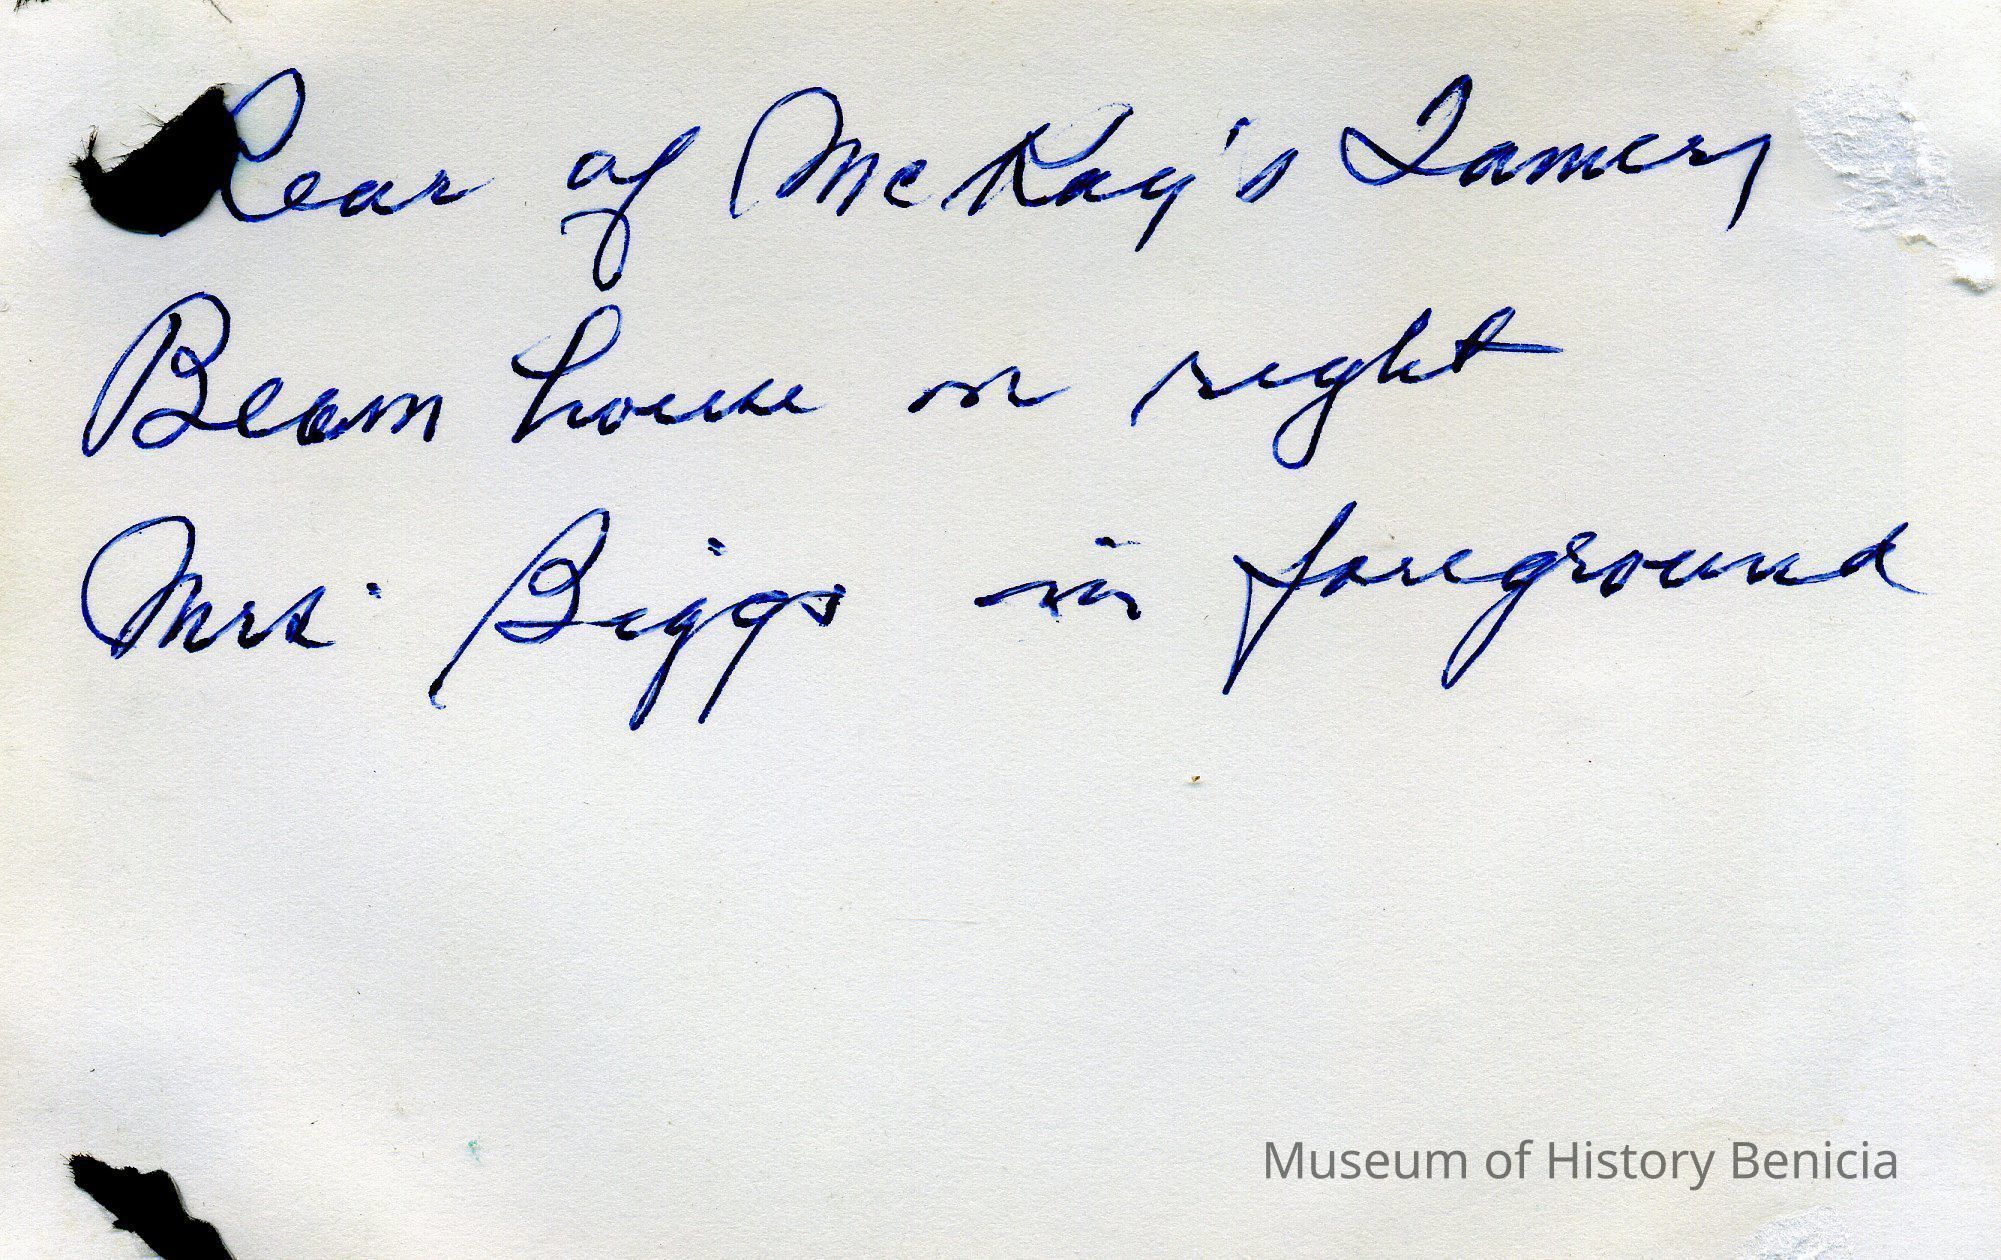 Rear of McKay's Tannery
Beam house on right
Mrs. Biggs in foreground
Museum of History Benicia